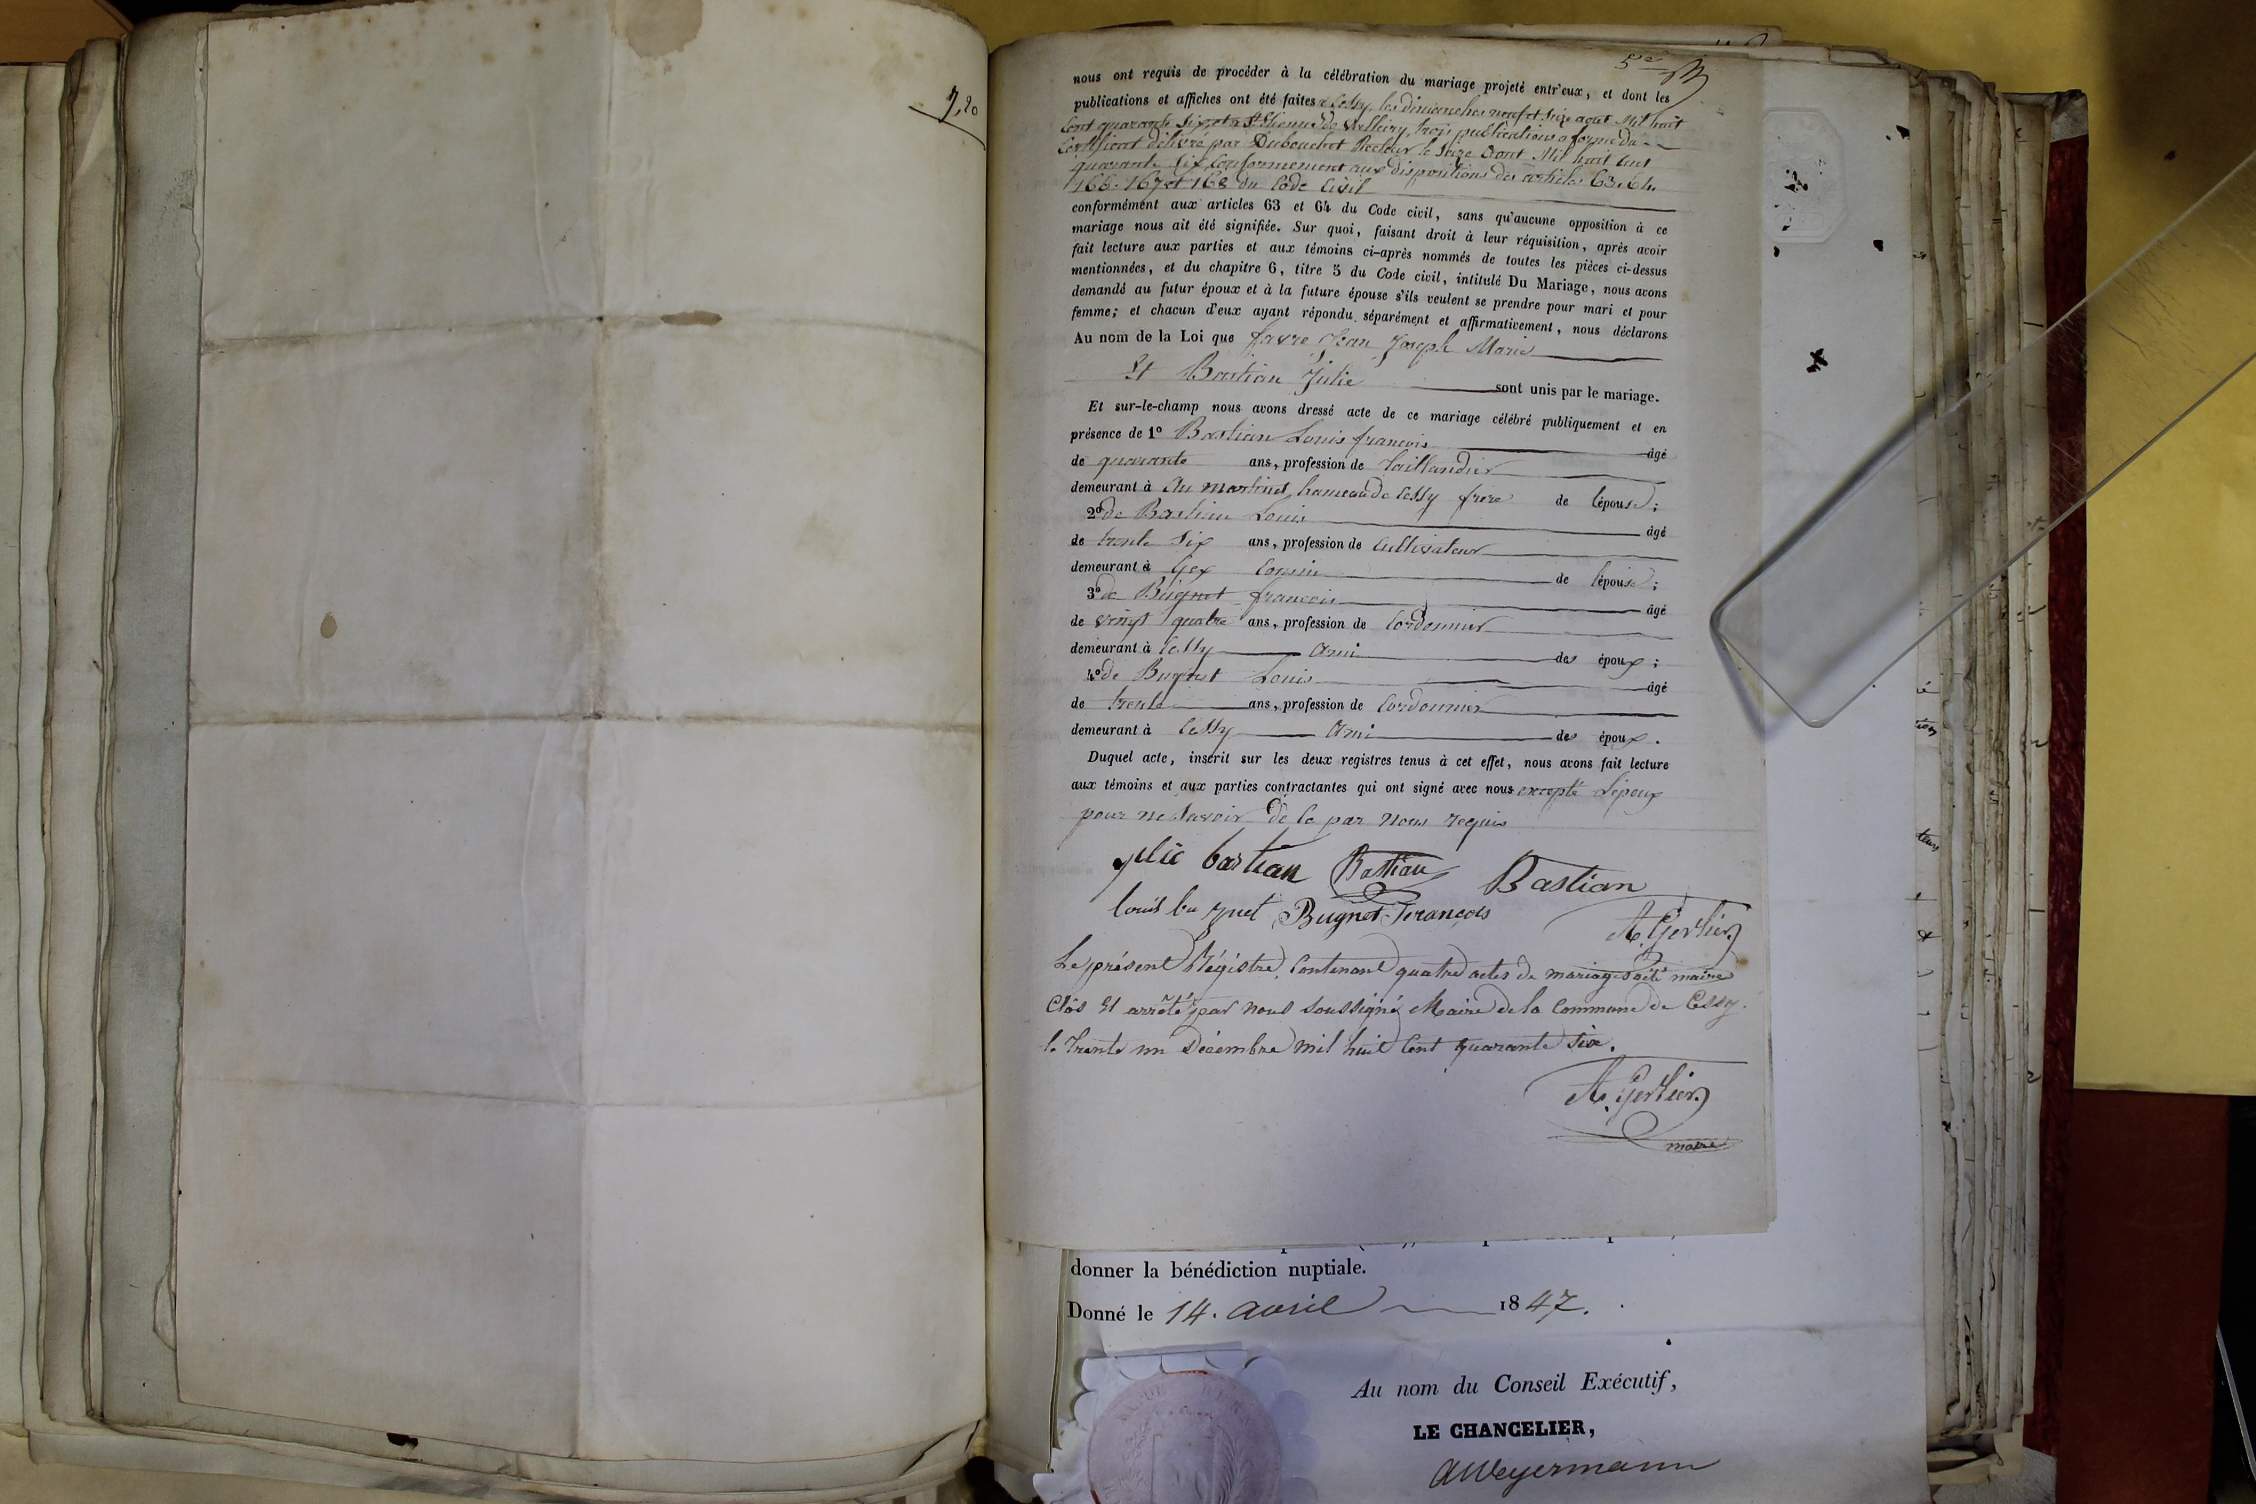 7,20
5e
nous ont requis de procéder à la célébration du mariage projeté entr'eux, et dont les
publications et affiches ont été faites a Cessy, les dimanches neuf et seize aout Mil huit
Cent quarante Six et a St Etienne de trois publications a forme du
Certificat délivré par Dubouchet Recteur le Seize Aout Mil huit Cent
quarante Six Conformement aux dispositions des articles 63. 64.
166. 167 et 168 du Code Civil
conformément aux articles 63 et 64 du Code civil, sans qu'aucune opposition à ce
mariage nous ait été signifiée. Sur quoi, faisant droit à leur réquisition, après avoir
fait lecture aux parties et aux témoins ci-après nommés de toutes les pièces ci-dessus
mentionnées, et du chapitre 6, titre 5 du Code civil, intitulé Du Mariage, nous avons
demandé au futur époux et à la future épouse s'ils veulent se prendre pour mari et pour
femme; et chacun d'eux ayant répondu séparément et affirmativement, nous déclarons
Au nom de la Loi que favre Jean Joseph Marie
Et Bastian Julie sont unis par le mariage.
Et sur-le-champ nous avons dressé acte de ce mariage célébré publiquement et en
présence de 1o Bastian Louis francois âgé
de quarante ans, profession de Taillandier
demeurant à Au martinet hameau de Cessy frere de lépouse;
2o de Bastian Louis âgé
de trente Six ans, profession de Cultivateur
demeurant à Gex Cousin de lépouse;
3o de Bugnet francois âgé
de vingt quatre ans, profession de Cordonnier
demeurant à Cessy Ami des époux;
4o de Bugnet Louis âgé
de trente ans, profession de Cordonnier
demeurant à Cessy Ami des époux.
Duquel acte, inscrit sur les deux registres tenus à cet effet, nous avons fait lecture
aux témoins et aux parties contractantes qui ont signé avec nous excepté L'époux
pour ne Savoir de ce par nous requis
julie bastian Bastian Bastian
louis bugnet Bugnet francois A. Gerlier
maire
Le présent Régistre, Contenant quatre actes de mariage a été
Clos Et arrêté par nous soussigné Maire de la Commune de Cessy.
le Trente un Décembre mil huit Cent quarante Six.
A. Gerlier
maire
donner la bénédiction nuptiale.
Donné le 14. avril 1847.
Au nom du Conseil Exécutif,
LE CHANCELIER,
AWeyermann